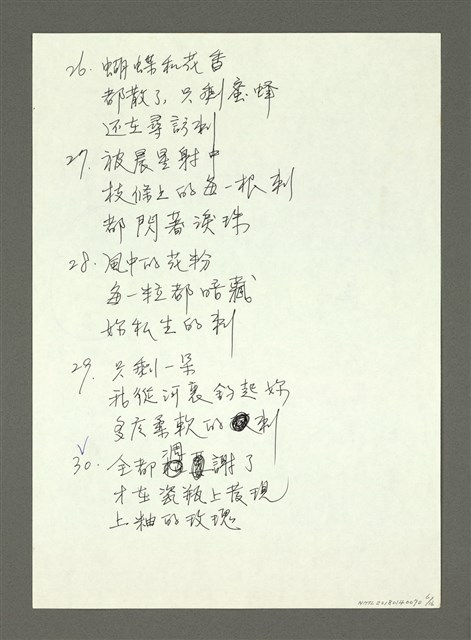 26. 蝴蝶和花香
都散了，只剩蜜蜂
还在尋訪刺
27. 被晨星射中
枝條上的每一根刺
都閃著淚珠
28. 風中的花粉
每一粒都暗藏
妳私生的刺
29. 只剩一朵
我從河裏釣起妳
多疼柔軟的刺
30. 全都凋謝了
才在瓷瓶上發現
上釉的玫瑰